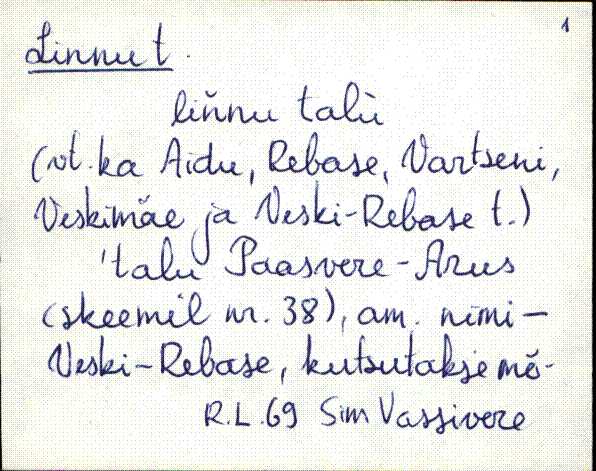 1
Linnu t.
liňnu talù
(vt. ka Aidu, Rebase, Vartseni,
Veskimäe ja Veski-Rebase t.)
'talu Paasvere-Arus
(skeemil nr. 38), am. nimi-
Veski-Rebase, kutsutakse mõ-
R.L.69 Sim Vassivere